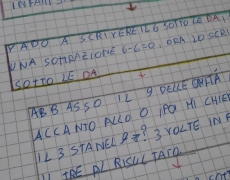 VADO A SCRIVERE IL 6 SOTTO LE DA
UNA SOTTRAZIONE 6-6=0, ORA LO SCRI
SOTTO LE DA.
ABBASSO IL 9 DELLE UNITÀ
ACCANTO ALLO 0. POI MI CHIE
IL 3 STA NEL 9? 3 VOLTE
IL TRE AL RISULTATO